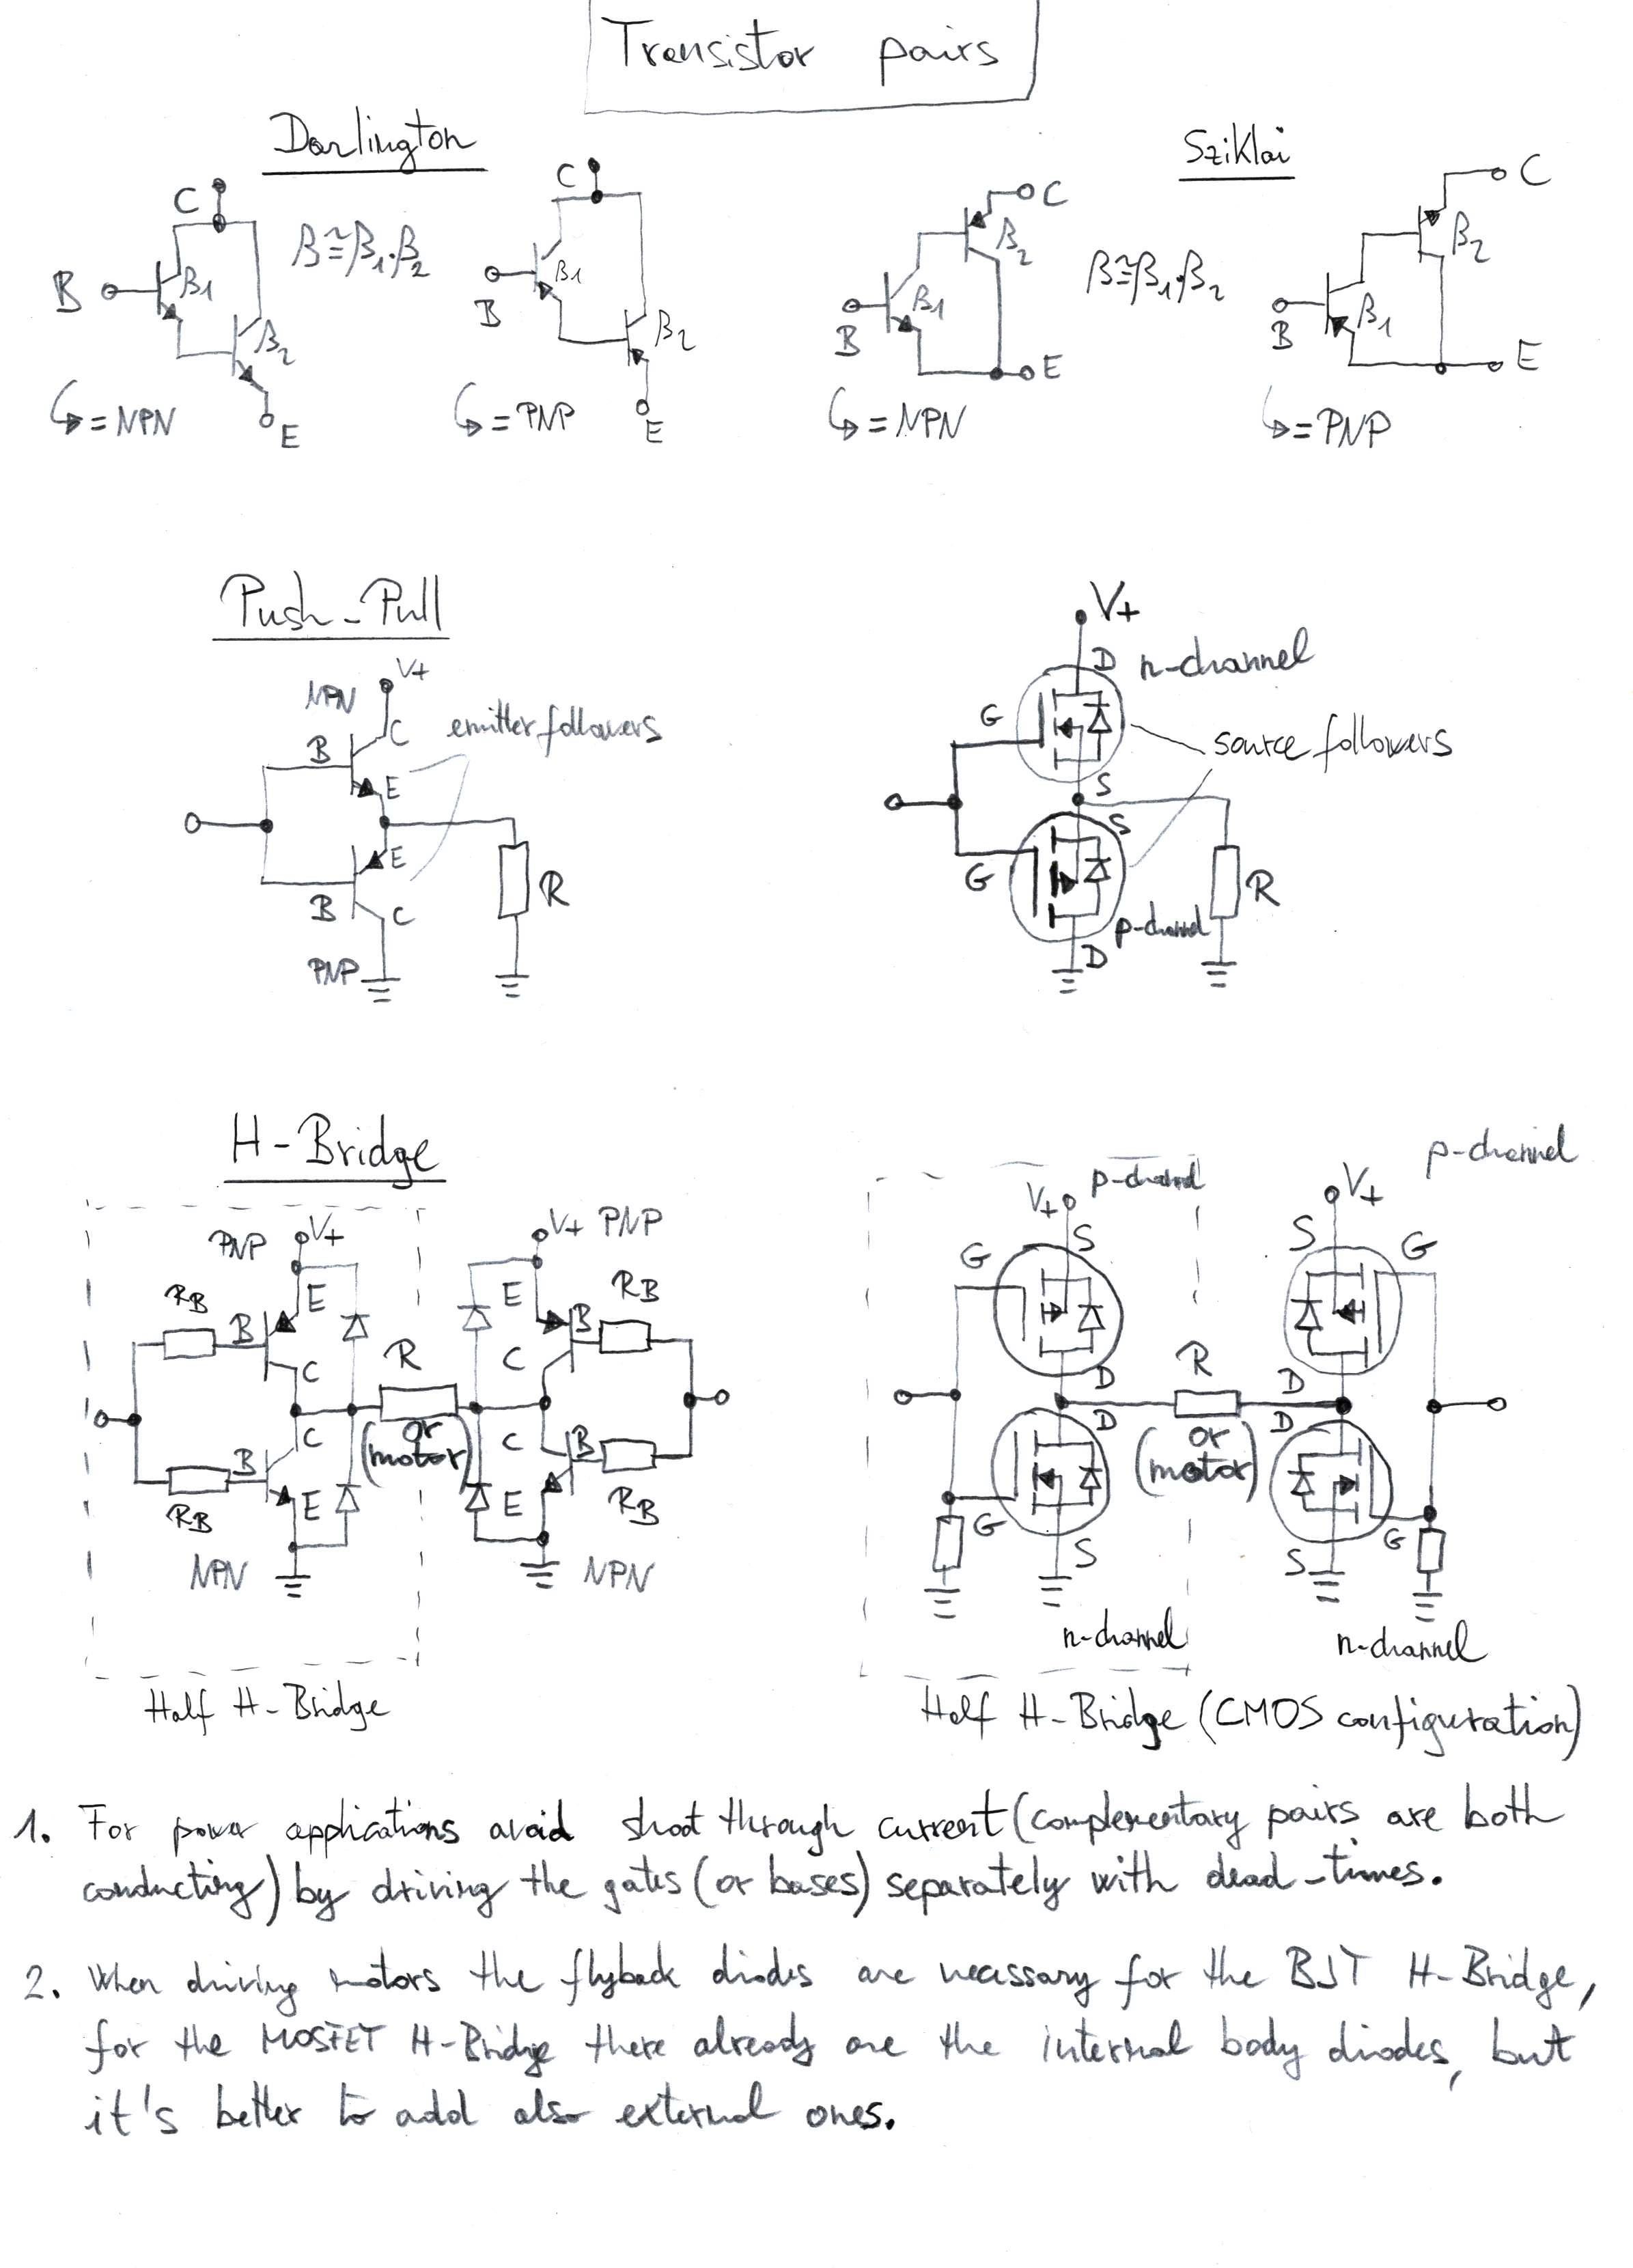 Transistor pairs
Darlington
Sziklai
C
β≅β1·β2
B
β1
β2
E
↳=NPN
C
B
β1
β2
E
↳=PNP
C
β2
β≅β1·β2
B
β1
E
↳=NPN
C
β2
B
β1
E
↳=PNP
Push-Pull
V+
NPN
C
emitter followers
B
E
E
B
C
R
PNP
V+
D
n-channel
G
source followers
S
S
G
R
p-channel
D
H-Bridge
PNP
V+
RB
E
B
C
R
(or motor)
C
B
E
RB
NPN
V+
PNP
E
B
RB
C
C
B
E
RB
NPN
Half H-Bridge
p-channel
V+
S
G
D
R
D
(or motor)
G
S
n-channel
p-channel
V+
S
G
D
D
G
S
n-channel
Half H-Bridge (CMOS configuration)
1. For power applications avoid shoot through current (complementary pairs are both
conducting) by driving the gates (or bases) separately with dead-times.
2. When driving motors the flyback diodes are necessary for the BJT H-Bridge,
for the MOSFET H-Bridge there already are the internal body diodes, but
it's better to add also external ones.